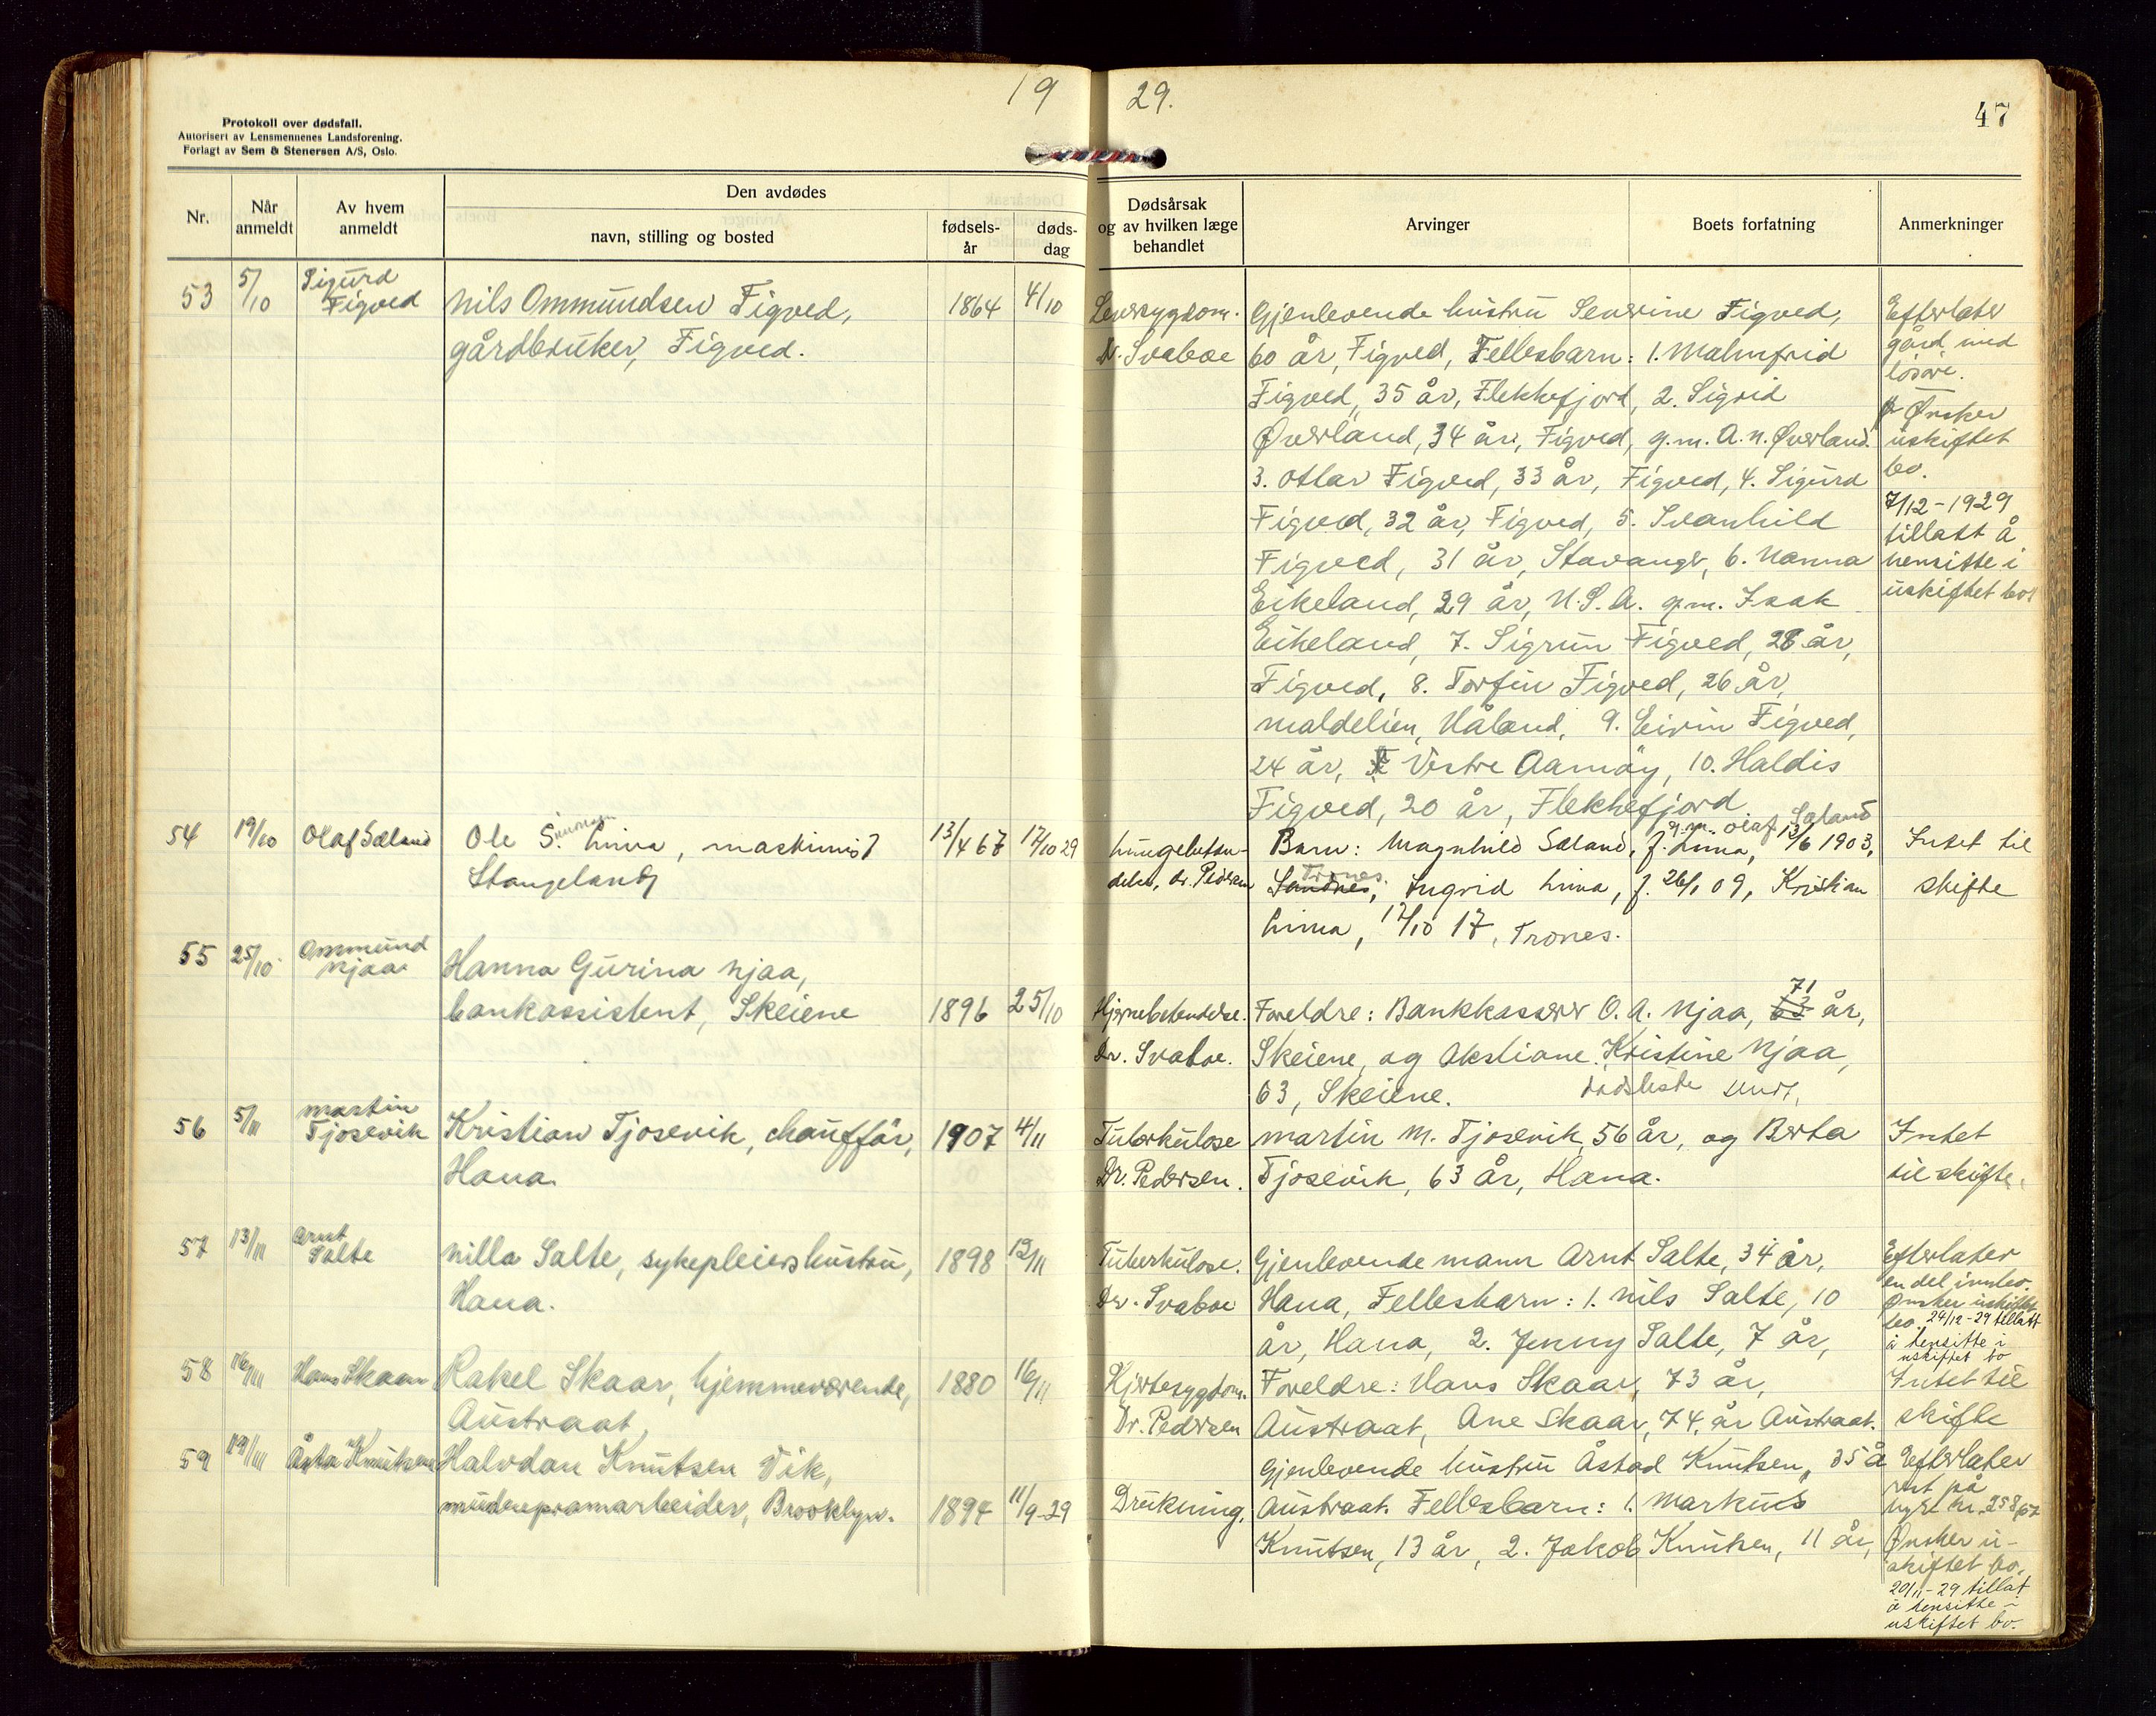 19 29.
47
Protokoll over dødsfall.
Autorisert av Lensmennenes Landsforening.
Forlagt av Sem & Stenersen A/S, Oslo.
Nr.
Når anmeldt
Av hvem anmeldt
Den avdødes
navn, stilling og bosted
fødsels-år
døds-dag
Dødsårsak og av hvilken læge behandlet
Arvinger
Boets forfatning
Anmerkninger
53 5/10 Sigurd Figved
Nils Ommundsen Figved,
gårdbruker, Figved.
1864 4/10
Leversygdom.
Dr. Svaboe
Gjenlevende hustru Severine Figved,
60 år, Figved, Fellesbarn: 1. Malmfrid
Figved, 35 år, Flekkefjord, 2. Sigrid
Øverland, 34 år, Figved, g.m. A. N. Øverland.
3. Otlar Figved, 33 år, Figved, 4. Sigurd
Figved, 32 år, Figved, 5. Svanhild
Figved, 31 år, Stavanger, 6. Nanna
Eikeland, 29 år, U.S.A. g.m. Isak
Eikeland, 7. Sigrun Figved, 28 år,
Figved, 8. Torfin Figved, 26 år,
Maldelien, Håland, 9. Eirin Figved,
24 år, Vestre Aamøy, 10. Haldis
Figved, 20 år, Flekkefjord
Efterlater
gård med
løsøre.
Ønsker
uskiftet
bo.
7/12-1929
tillatt å
hensitte i
uskiftet bo
54 19/10 Olaf Sæland
Ole S. Lima, maskinist
Stangeland
13/4 67 17/10 29
Lungebetæn-
delse, dr. Pedersen
g.m. Olaf Sæland
Barn: Magnhild Sæland, f. Lima, 13/6 1903,
Sandnes, Trones. Ingrid Lima, f. 26/1 09, Kristian
Lima, 17/10 17, Trones.
Intet til
skifte
55 25/10 Ommund Njaa
Hanna Gurina Njaa,
bankassistent, Skeiene
1896 25/10
Hjernebetendelse.
Dr. Svaboe.
Foreldre: Bankkasserer O. A. Njaa, 63 71 år,
Skeiene, og Akstiane Kristine Njaa,
63, Skeiene. dødsliste
56 5/11 Martin Tjosevik
Kristian Tjosevik, chauffør,
Hana
1907 4/11
Tuberkulose
Dr. Pedersen.
Martin M. Tjosevik, 56 år, og Berta
Tjosevik, 63 år, Hana.
Intet
til skifte.
57 13/11 Arnt Salte
Nilla Salte, sykepleiers hustru,
Hana.
1898 12/11
Tuberkulose.
Dr. Svaboe
Gjenlevende mann Arnt Salte, 34 år,
Hana, Fellesbarn: 1. Nils Salte, 10
år, Hana, 2. Jenny Salte, 7 år,
Efterlater
en del innbo.
Ønsker uskiftet
bo. 24/12-29 tillatt
å hensitte i
uskiftet bo
58 16/11 Hans Skaar
Rakel Skaar, hjemmeværende,
Austraat
1880 16/11
Hjertesygdom.
Dr. Pedersen
Foreldre: Hans Skaar, 73 år,
Austraat, Ane Skaar, 74 år Austraat.
Intet til
skifte
59 19/11 Åsta Knutsen
Halvdan Knutsen Vik,
mudderpramarbeider, Brooklyn.
1894 11/9-29
Drukning.
Gjenlevende hustru Åstad Knutsen, 35 å
Austraat. Fellesbarn: 1. Markus
Knutsen, 13 år, 2. Jakob Knutsen, 11 år,
Efterlater
rett på
hyre kr.
Ønsker u-
skiftet bo.
20/11-29 tillat
å hensitte i
uskiftet bo.